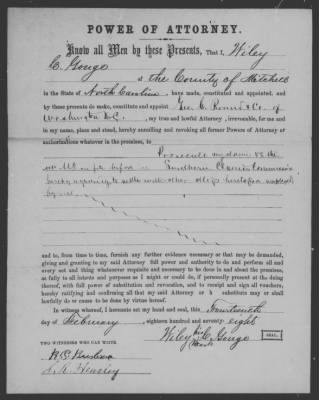 POWER OF ATTORNEY.
Know all Men by these Presents, That I, Wiley
C. Gouge
of the County of Mitchell
in the State of North Carolina, have made, constituted and appointed, and
by these presents do make, constitute and appoint Geo. E.
Washington D.C., my true and lawful Attorney, irrevocable, for me and
in my name, place and stead, hereby annulling and revoking all former Powers of Attorney or
authorizations whatever in the premises, to
Prosecute my claim vs the
before Southern Claims Commission
hereby agreeing to with other
by me
and to, from time to time, furnish any further evidence necessary or that may be demanded,
giving and granting to my said Attorney full power and authority to do and perform all and
every act and thing whatsoever requisite and necessary to be done in and about the premises,
as fully to all intents and purposes as I might or could do, if personally present at the doing
thereof, with full power of substitution and revocation, and to receipt and sign all vouchers,
hereby ratifying and confirming all that my said Attorney or h substitute may or shall
lawfully do or cause to be done by virtue hereof.
In witness whereof, I hereunto set my hand and seal, this Fourteenth
day of February eighteen hundred and seventy eight
Wiley his C. Gouge SEAL.
mark
TWO WITNESSES WHO CAN WRITE.
Hensley